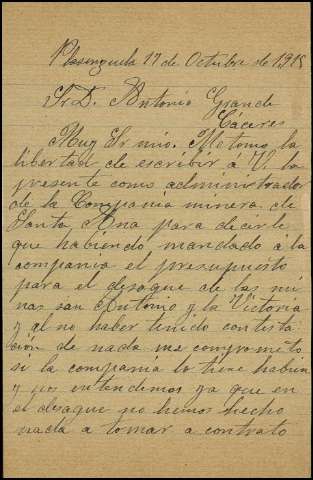 Plasenzuela 17 de Octubre de 1918
Sr D. Antonio Grande
Cáceres
Muy Sr mio. Me tomo la
libertad de escribir á V. la
presente como administrador
de la Compania minera de
Santa Ana para decirle
que habiendo mandado a la
compania el presupuesto
para el desague de las mi
nas san Antonio y la Victoria
y al no haber tenido contesta
ción de nada me comprometo
si la compania lo tiene
y nos entendemos ya que en
el desague no hemos hecho
nada a tomar a contrato